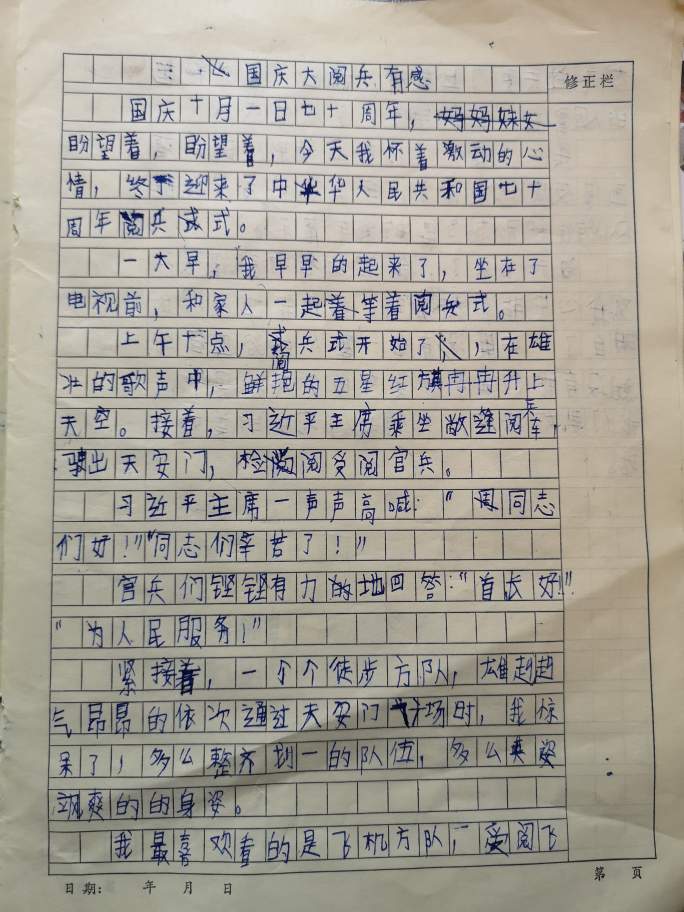 国庆大阅兵有感
修正栏
国庆十月一日七十周年，
盼望着，盼望着，今天我怀着激动的心
情，终于迎来了中华人民共和国七十
周年阅兵式。
一大早，我早早的起来了，坐在了
电视前，和家人一起等着阅兵式。
上午十点，阅兵式开始了，在雄
壮的歌声中，鲜艳的五星红旗冉冉升上
天空。接着，习近平主席乘坐敞篷阅兵车，
驶出天安门，检阅受阅官兵。
习近平主席一声声高喊："同志
们好！""同志们辛苦了！"
官兵们铿铿有力的地回答："首长好！"
"为人民服务！"
紧接着，一个个徒步方队，雄赳赳
气昂昂的依次通过天安门广场时，我惊
呆了，多么整齐划一的队伍，多么英姿
飒爽的的身姿。
我最喜欢看的是飞机方队，受阅飞
日期： 年 月 日
第 页